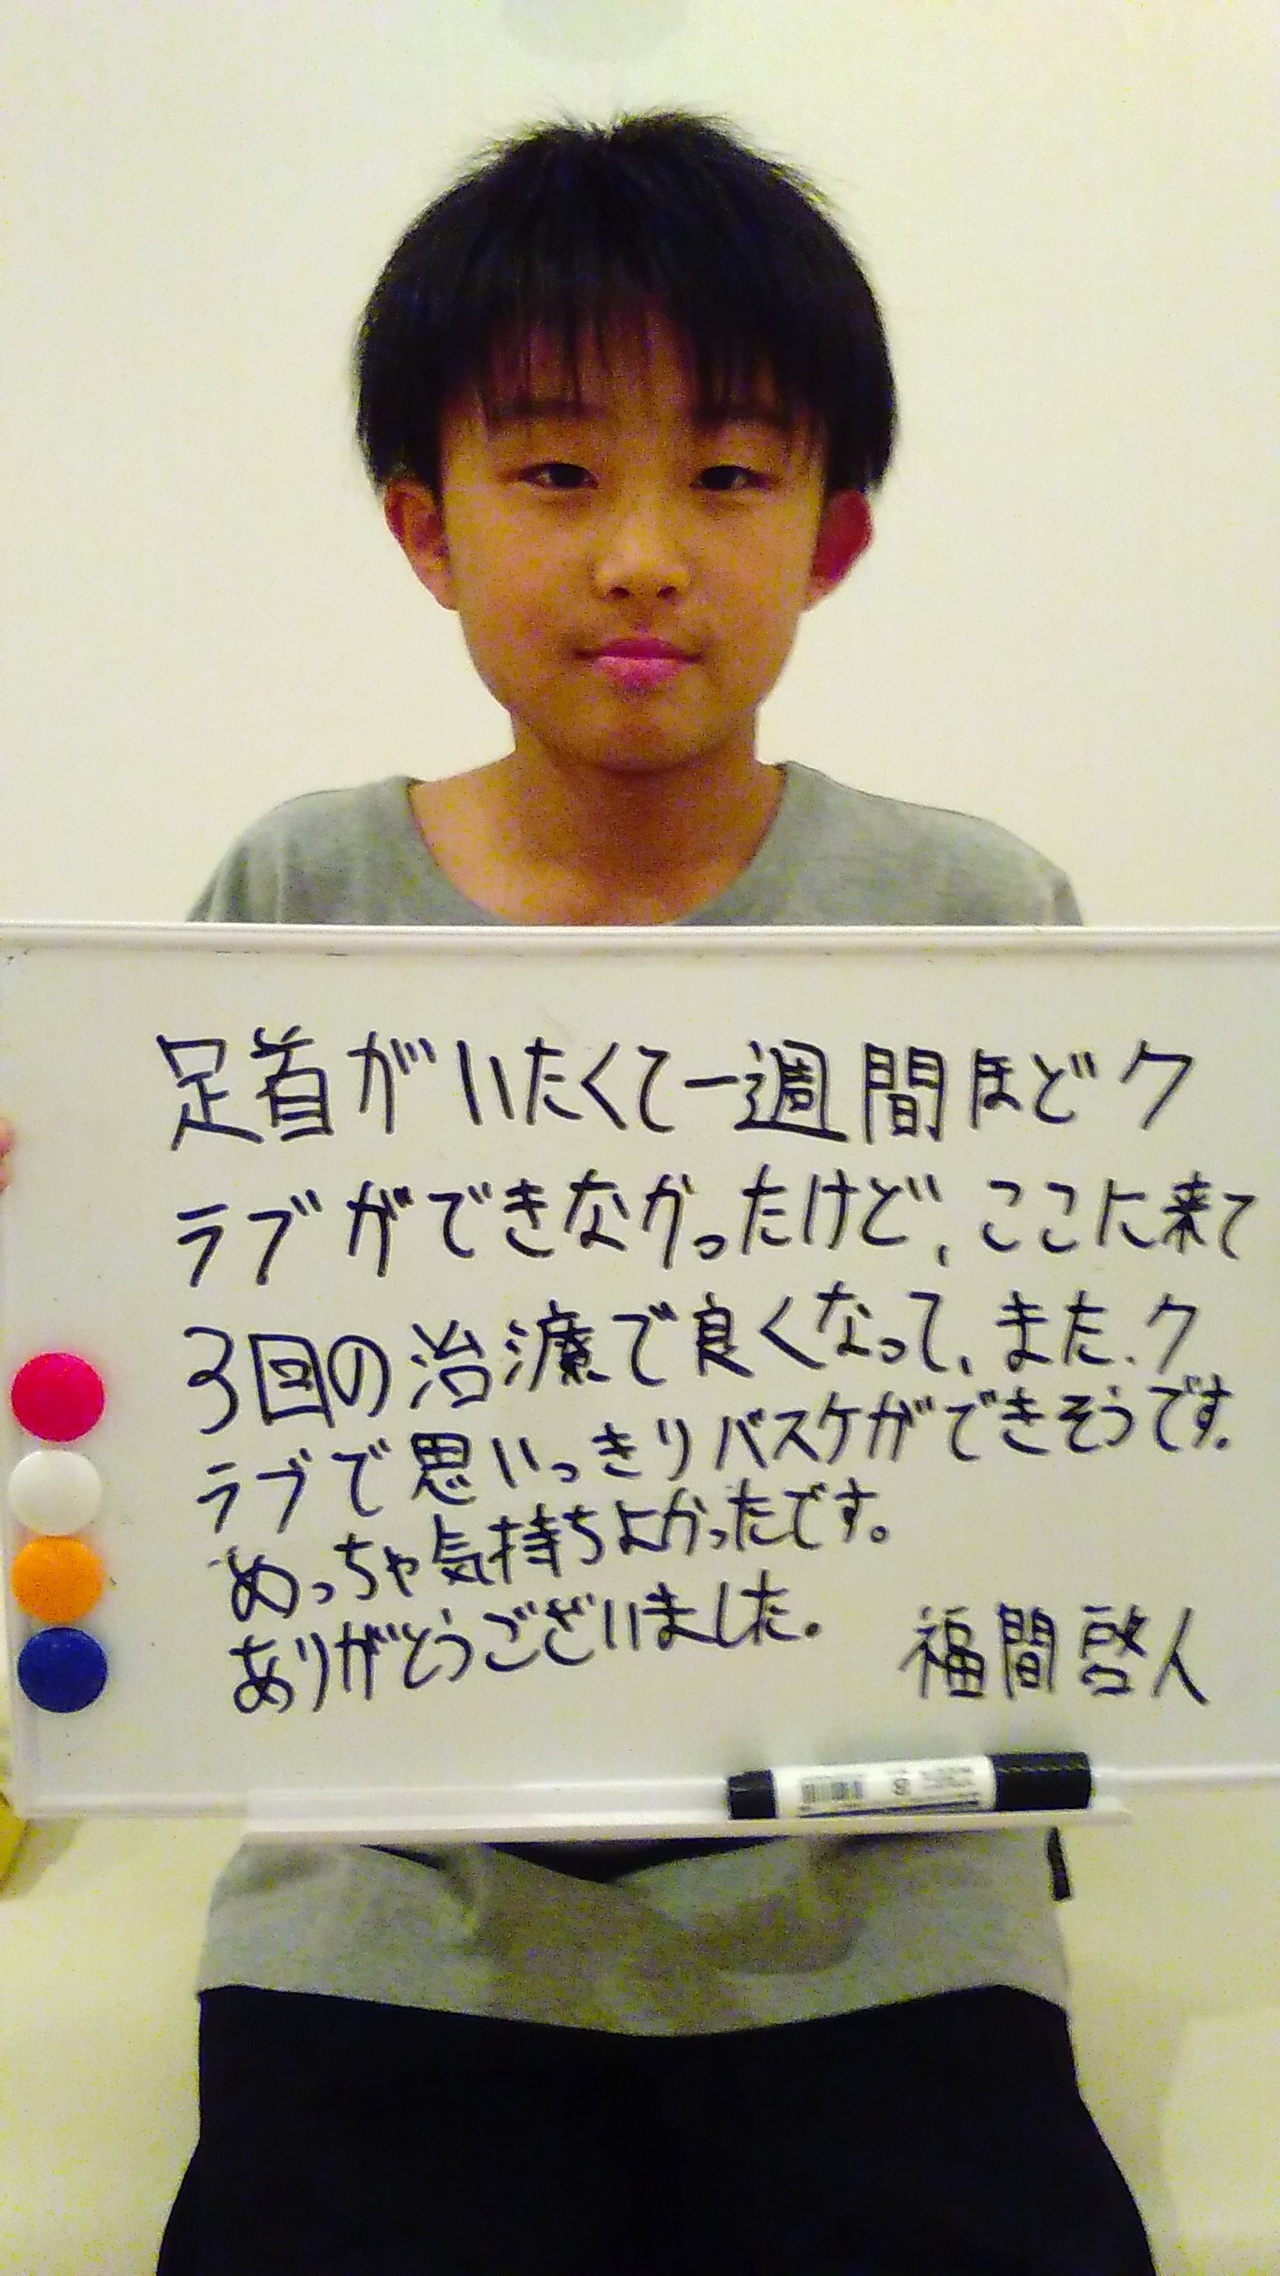 足首がいたくて一週間ほどク
ラブができなかったけど、ここに来て
3回の治療で良くなって、また、ク
ラブで思いっきりバスケができそうです。
めっちゃ気持ちよかったです。
ありがとうございました。
福間啓人